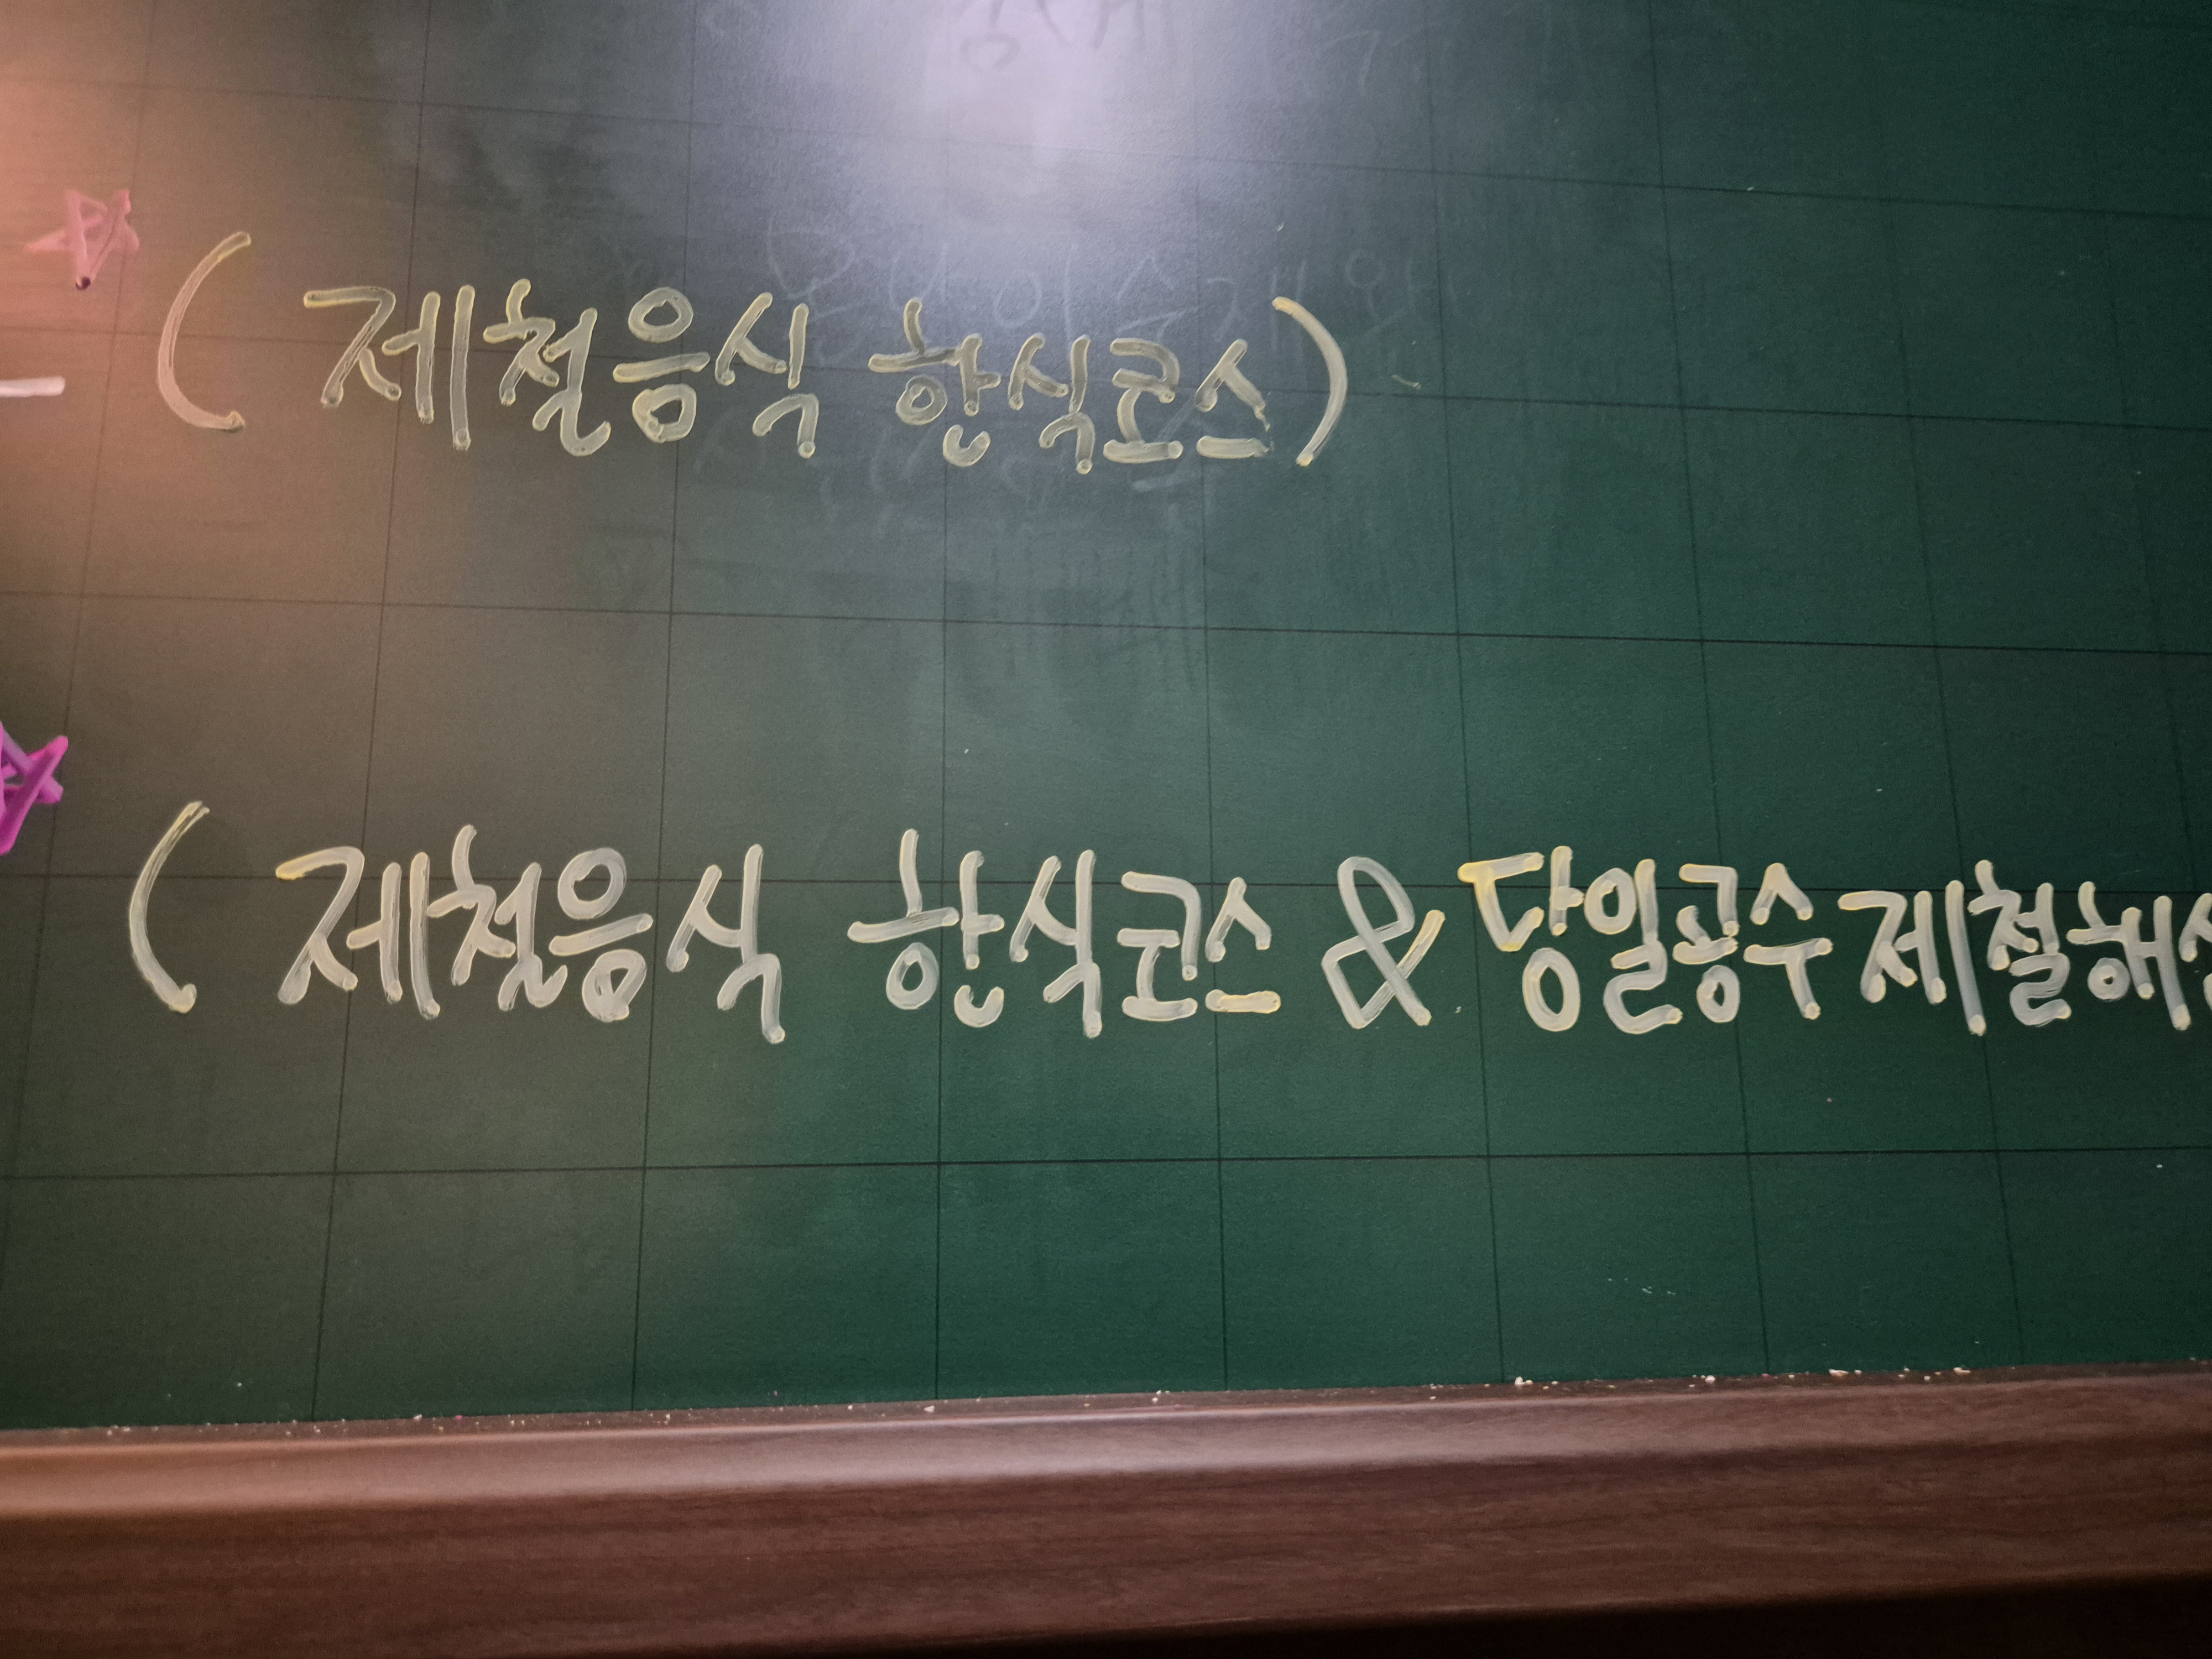 ( 제철음식 한식코스)
( 제철음식 한식코스 & 당일공수 제철해